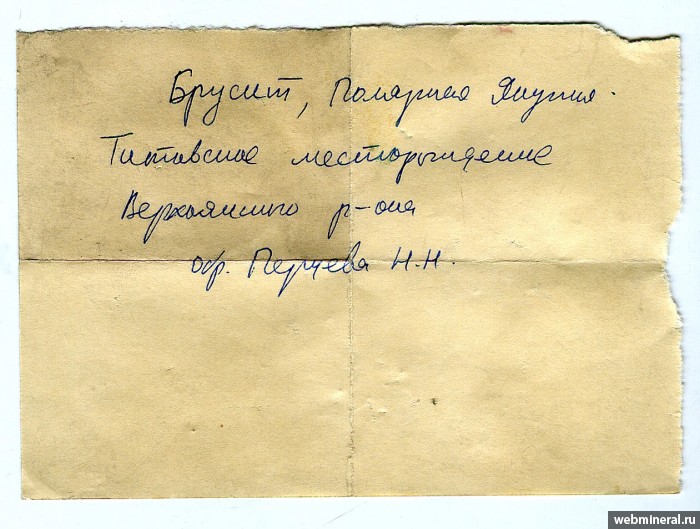 Брусит, Полярная Якутия.
Титовское месторождение
Верхоянского р-она
обр. Перцева Н.Н.
webmineral.ru